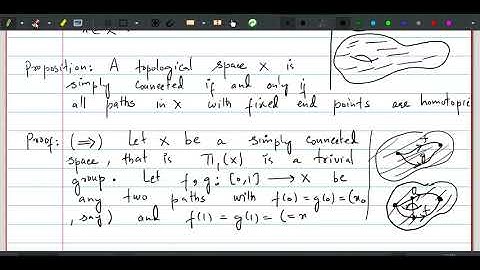 Proposition: A topological space X is
simply connected if and only if
all paths in X with fixed end points are homotopic
Proof: (⟹) Let X be a simply connected
space, that is π₁(X) is a trivial
group. Let f, g: [0,1] ⟶ X be
any two paths with f(0) = g(0) = (x₀
, say) and f(1) = g(1) = (= x